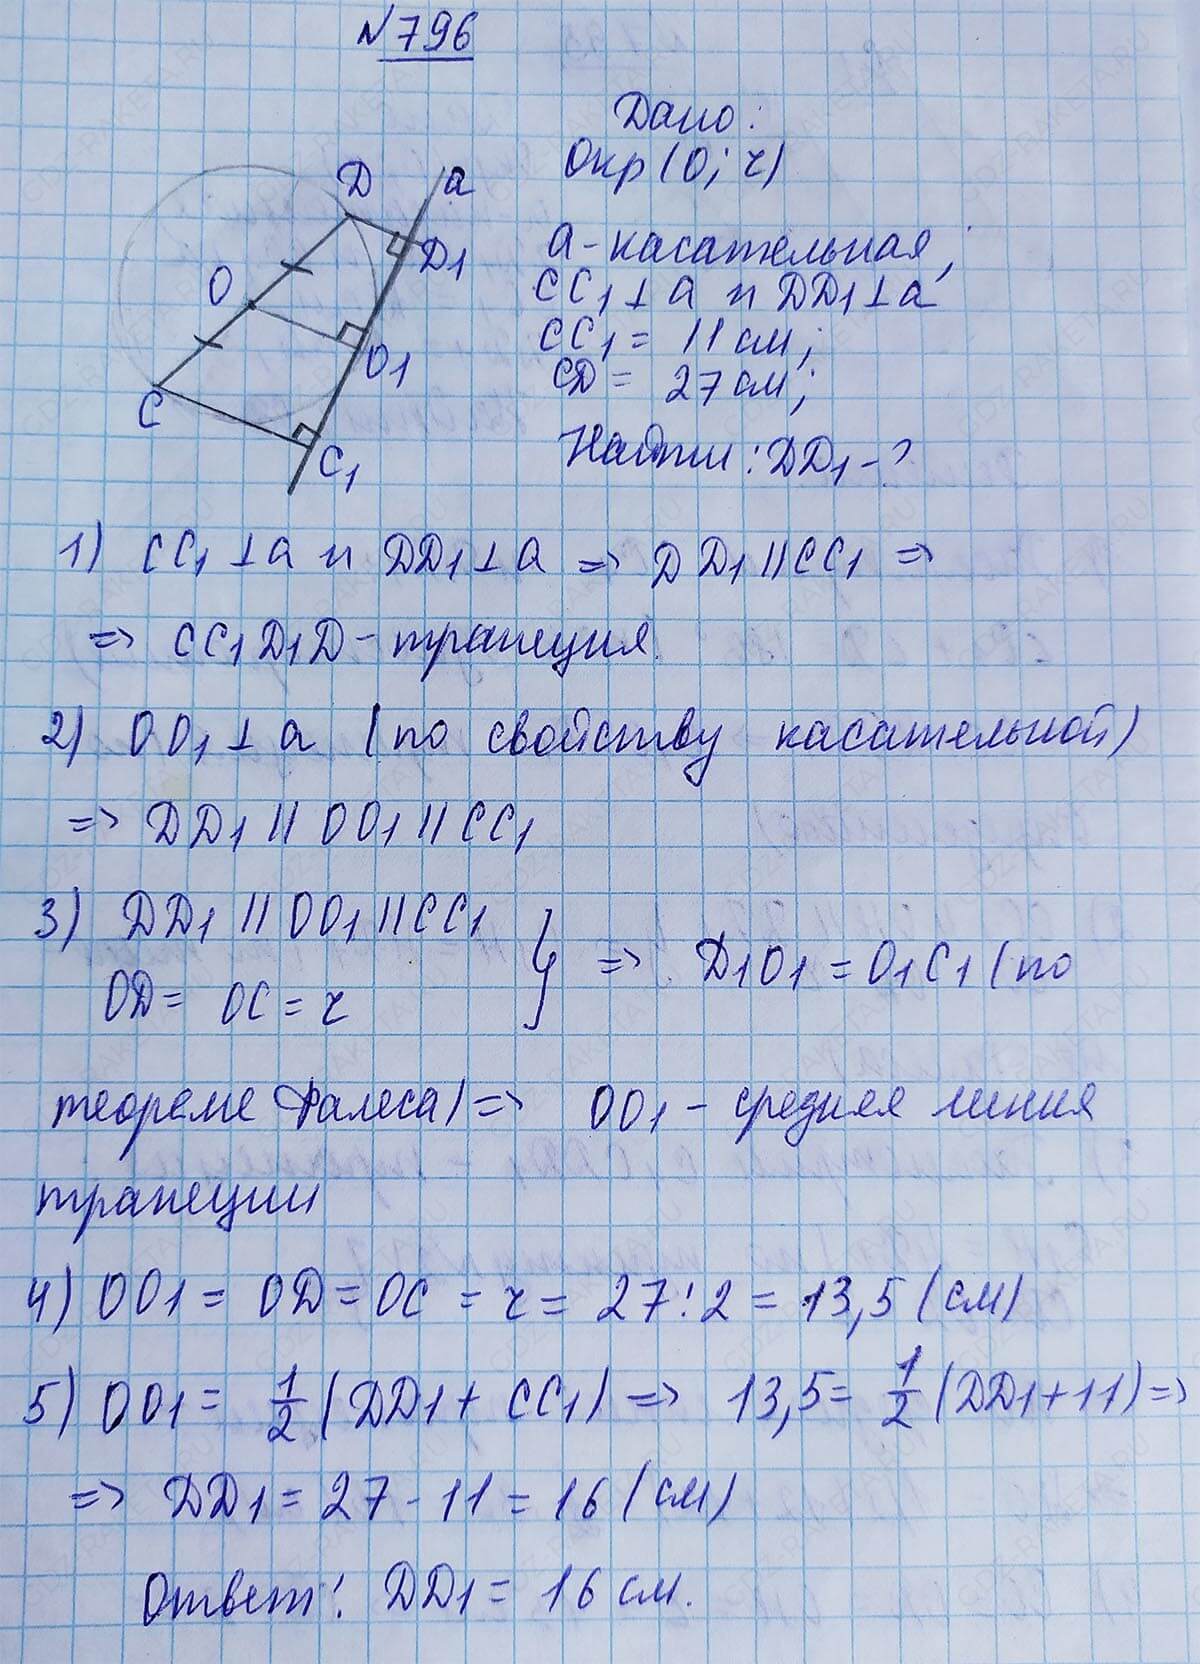 №796
Дано:
Окр (O; r)
D a
D1
O
O1
C
C1
a - касательная;
CC1 ⊥ a и DD1 ⊥ a
CC1 = 11 см;
CD = 27 см;
Найти: DD1 - ?
1) CC1 ⊥ a и DD1 ⊥ a => DD1 || CC1 =>
=> CC1D1D - трапеция.
2) OO1 ⊥ a (по свойству касательной)
=> DD1 || OO1 || CC1
3) DD1 || OO1 || CC1
OD = OC = r } => D1O1 = O1C1 (по
теореме Фалеса) => OO1 - средняя линия
трапеции
4) OO1 = OD = OC = r = 27 : 2 = 13,5 (см)
5) OO1 = 1/2 (DD1 + CC1) => 13,5 = 1/2 (DD1 + 11) =>
=> DD1 = 27 - 11 = 16 (см)
Ответ: DD1 = 16 см.